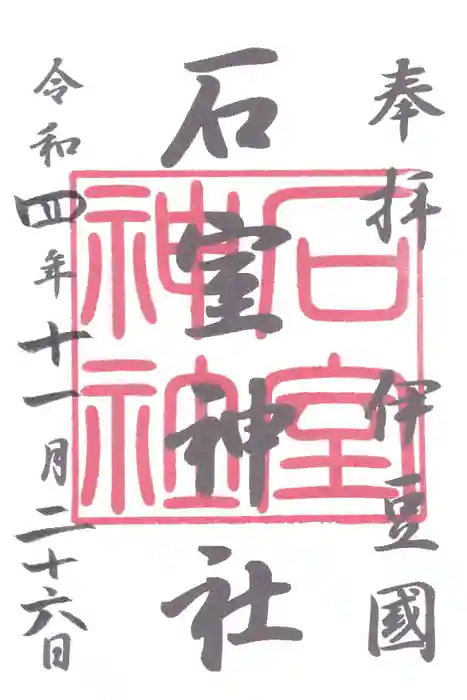 奉拝 伊豆國
石室神社
石室神社
令和四年十一月二十六日